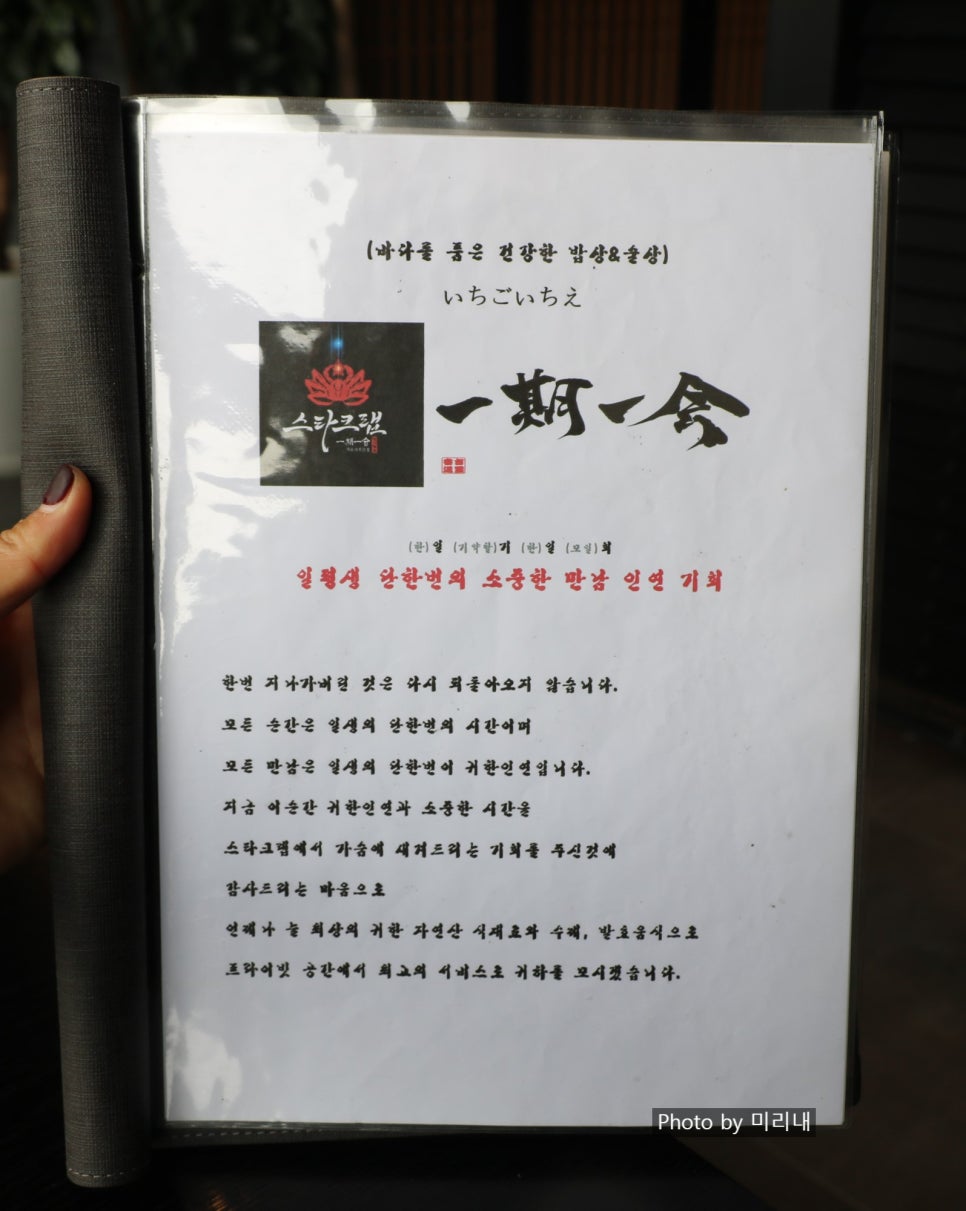 (바다를 품은 건강한 밥상&술상)
いちごいちえ
스타크탭
一期一会
一期一會
(한)일 (기약할)기 (한)일 (모일)회
일평생 단한번의 소중한 만남 인연 기회
한번 지나가버린 것은 다시 되돌아오지 않습니다.
모든 순간은 일생의 단한번의 시간이며
모든 만남은 일생의 단한번이 귀한인연입니다.
지금 이순간 귀한인연과 소중한 시간을
스타크탭에서 가슴에 새겨드리는 기회를 주신것에
감사드리는 마음으로
언제나 늘 최상의 귀한 자연산 식재료와 수제, 발효음식으로
프라이빗 공간에서 최고의 서비스로 귀하를 모시겠습니다.
Photo by 미리내